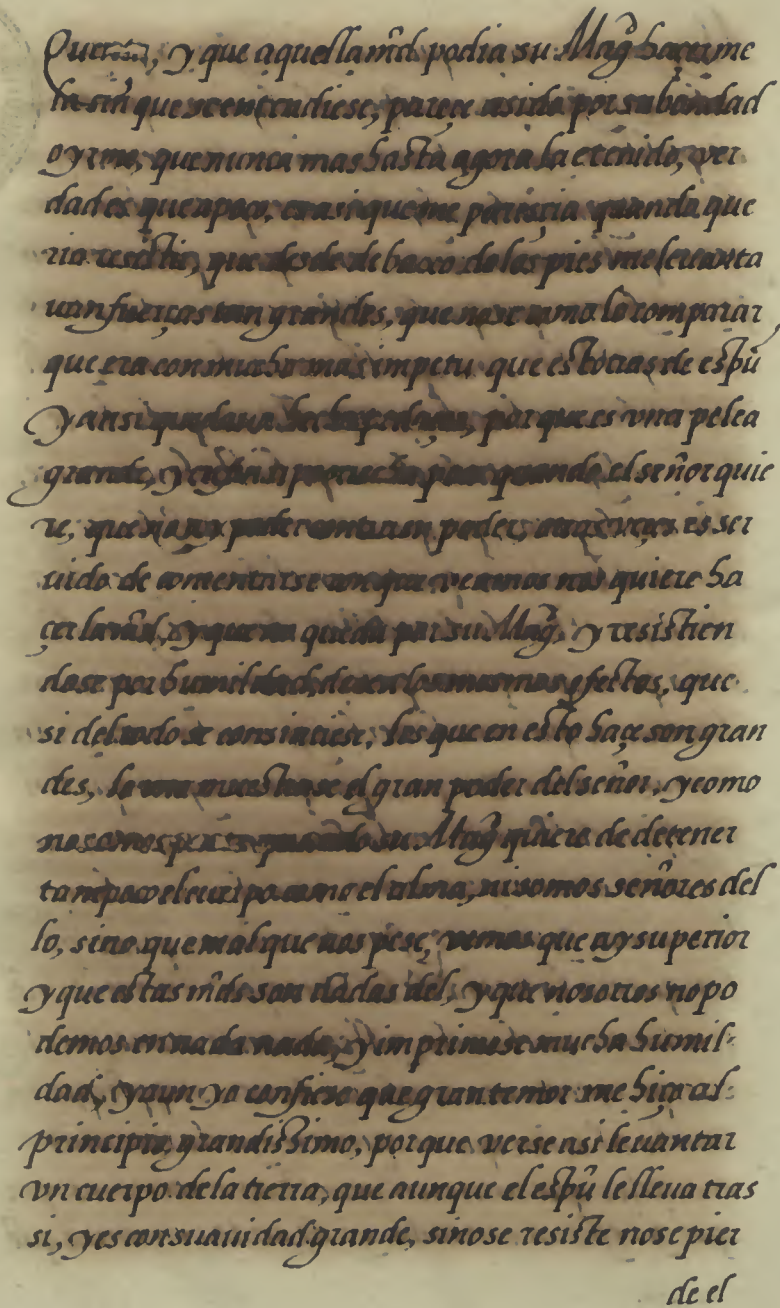 y que aquella mrd podia su Mag hacerme
la sin que se entendiese, pareçe asido por su bondad
oyrme, que nunca mas hasta agora la e tenido, ver
dad es que a poco, era asi que me pareçia quando que
ria resestir, que desde debaxo de los pies me leuanta
uan fuerças tan grandes, que no se como lo comparar,
que era con mucho mas impetu que estotras de espu
y ansi quedaua hecha pedaços, porque es vna pelea
grande, y en fin aprouecha poco quando el señor quie
re, que no ay poder contra su poder, otras veçes es ser
uido de contentarse con que veamos nos quiere ha
çer la mrd, y que no queda por su Mag, y resistien
dose por humildad, dexa los mismos efectos, que
si del todo se consintiese, los que en esto haçe son gran
des, lo vno muestrase el gran poder del señor, y como
no somos parte quando su Mag quiere de detener
tampoco el cuerpo como el alma, ni somos señores del
lo, sino que mal que nos pese, vemos que ay superior
y que estas mrds son dadas del, y que nosotros no po
demos en nada nada, y imprimese mucha humil-
dad, y aun yo confieso que gran temor me hiço al
principio grandissimo, porque verse asi leuantar
vn cuerpo de la tierra, que aunque el espu le lleua tras
si, y es con suauidad grande, si no se resiste no se pier
de el